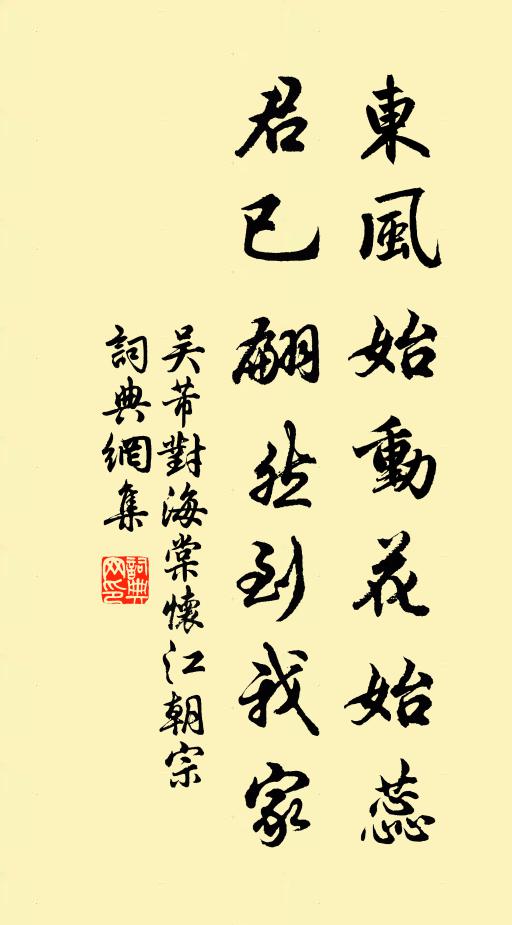 東風始動花始蕊
君已翩然到我家
吴芾對海棠懷江朝宗
詞典網集
詞典網印